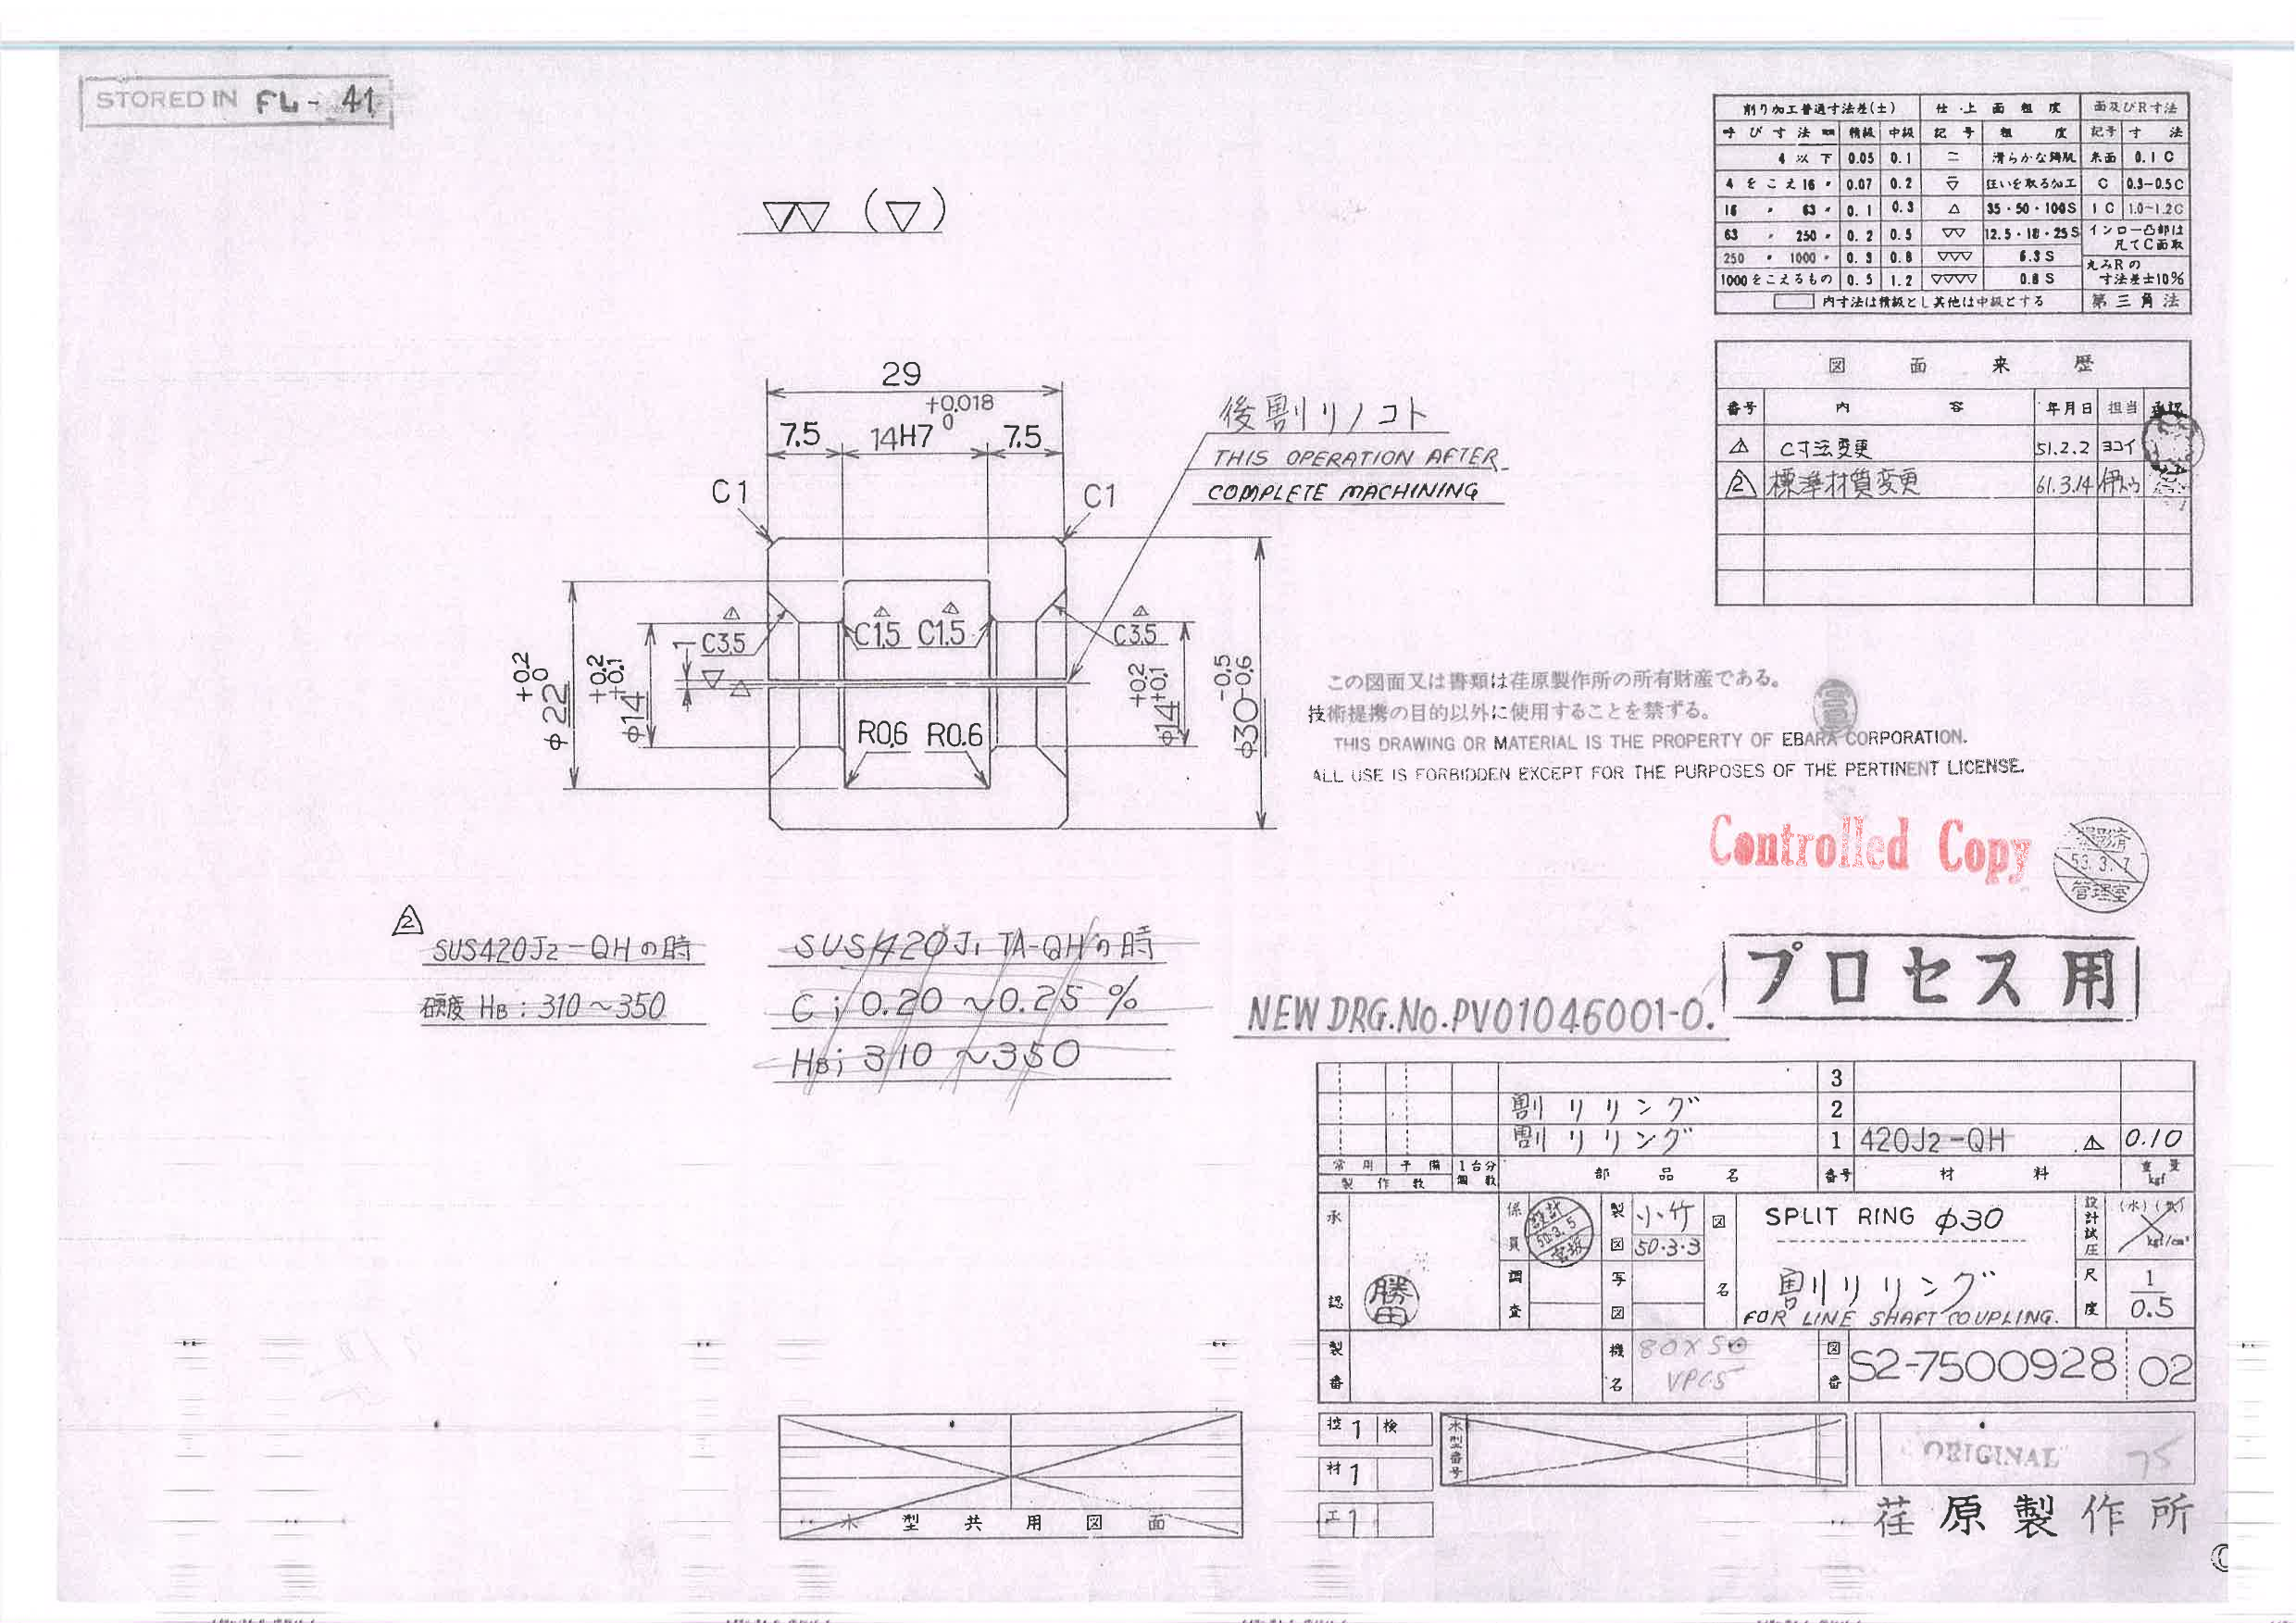 STORED IN FL- 41
▽▽ (▽)
削り加工普通寸法差(±) 仕上面粗度 面及びR寸法
呼び寸法 mm 精級 中級 記号 粗度 記号 寸法
4以下 0.05 0.1 滑らかな鋳肌 糸面 0.1 C
4をこえ16〃 0.07 0.2 狂いを取る加工 C 0.3-0.5C
16 〃 63〃 0.1 0.3 △ 35・50・100S 1 C 1.0~1.2C
63 〃 250〃 0.2 0.5 ▽▽ 12.5・18・25S インロー凸部は
凡てC面取
250 〃 1000〃 0.3 0.8 ▽▽▽ 6.3 S 丸みRの
1000をこえるもの 0.5 1.2 ▽▽▽▽ 0.8 S 寸法差±10%
内寸法は精級とし其他は中級とする 第三角法
図面来歴
番号 内容 年月日 担当 承認
C寸法変更 51.2.2 ヨコイ
2 標準材質変更 61.3.14
29
+0.018
7.5 14H7 0 7.5
C1 C1
後割リノコト
THIS OPERATION AFTER
COMPLETE MACHINING
C3.5 C1.5 C1.5 C3.5
1
▽
+0.2
0
φ22
+0.2
+0.1
φ14
+0.2
+0.1
φ14
-0.5
-0.6
φ30
R0.6 R0.6
この図面又は書類は荏原製作所の所有財産である。
技術提携の目的以外に使用することを禁ずる。
THIS DRAWING OR MATERIAL IS THE PROPERTY OF EBARA CORPORATION.
ALL USE IS FORBIDDEN EXCEPT FOR THE PURPOSES OF THE PERTINENT LICENSE.
Controlled Copy
53.3.7
管理室
2
SUS420J2-QHの時
硬度 HB : 310~350
SUS420J1 TA-QHの時
C ; 0.20 ~0.25 %
HB; 310 ~350
プロセス用
NEW DRG.No.PV01046001-0.
3
割リリング 2
割リリング 1 420J2-QH 0.10
常用 予備 1台分 部品名 番号 材料 重量
製作数 個数 kgf
承認 勝田
係員 設計 50.3.5 宮坂
調査
製図 小竹 50・3・3
写図
図名 SPLIT RING φ30
割リリング
FOR LINE SHAFT COUPLING.
設計試圧 (水) kgf/cm²
尺度 1
0.5
製番
機名 80X50
VPCS
図番 S2-7500928 02
控 1 検
材 1
工 1
木型番号
ORIGINAL 75
木型共用図面
荏原製作所